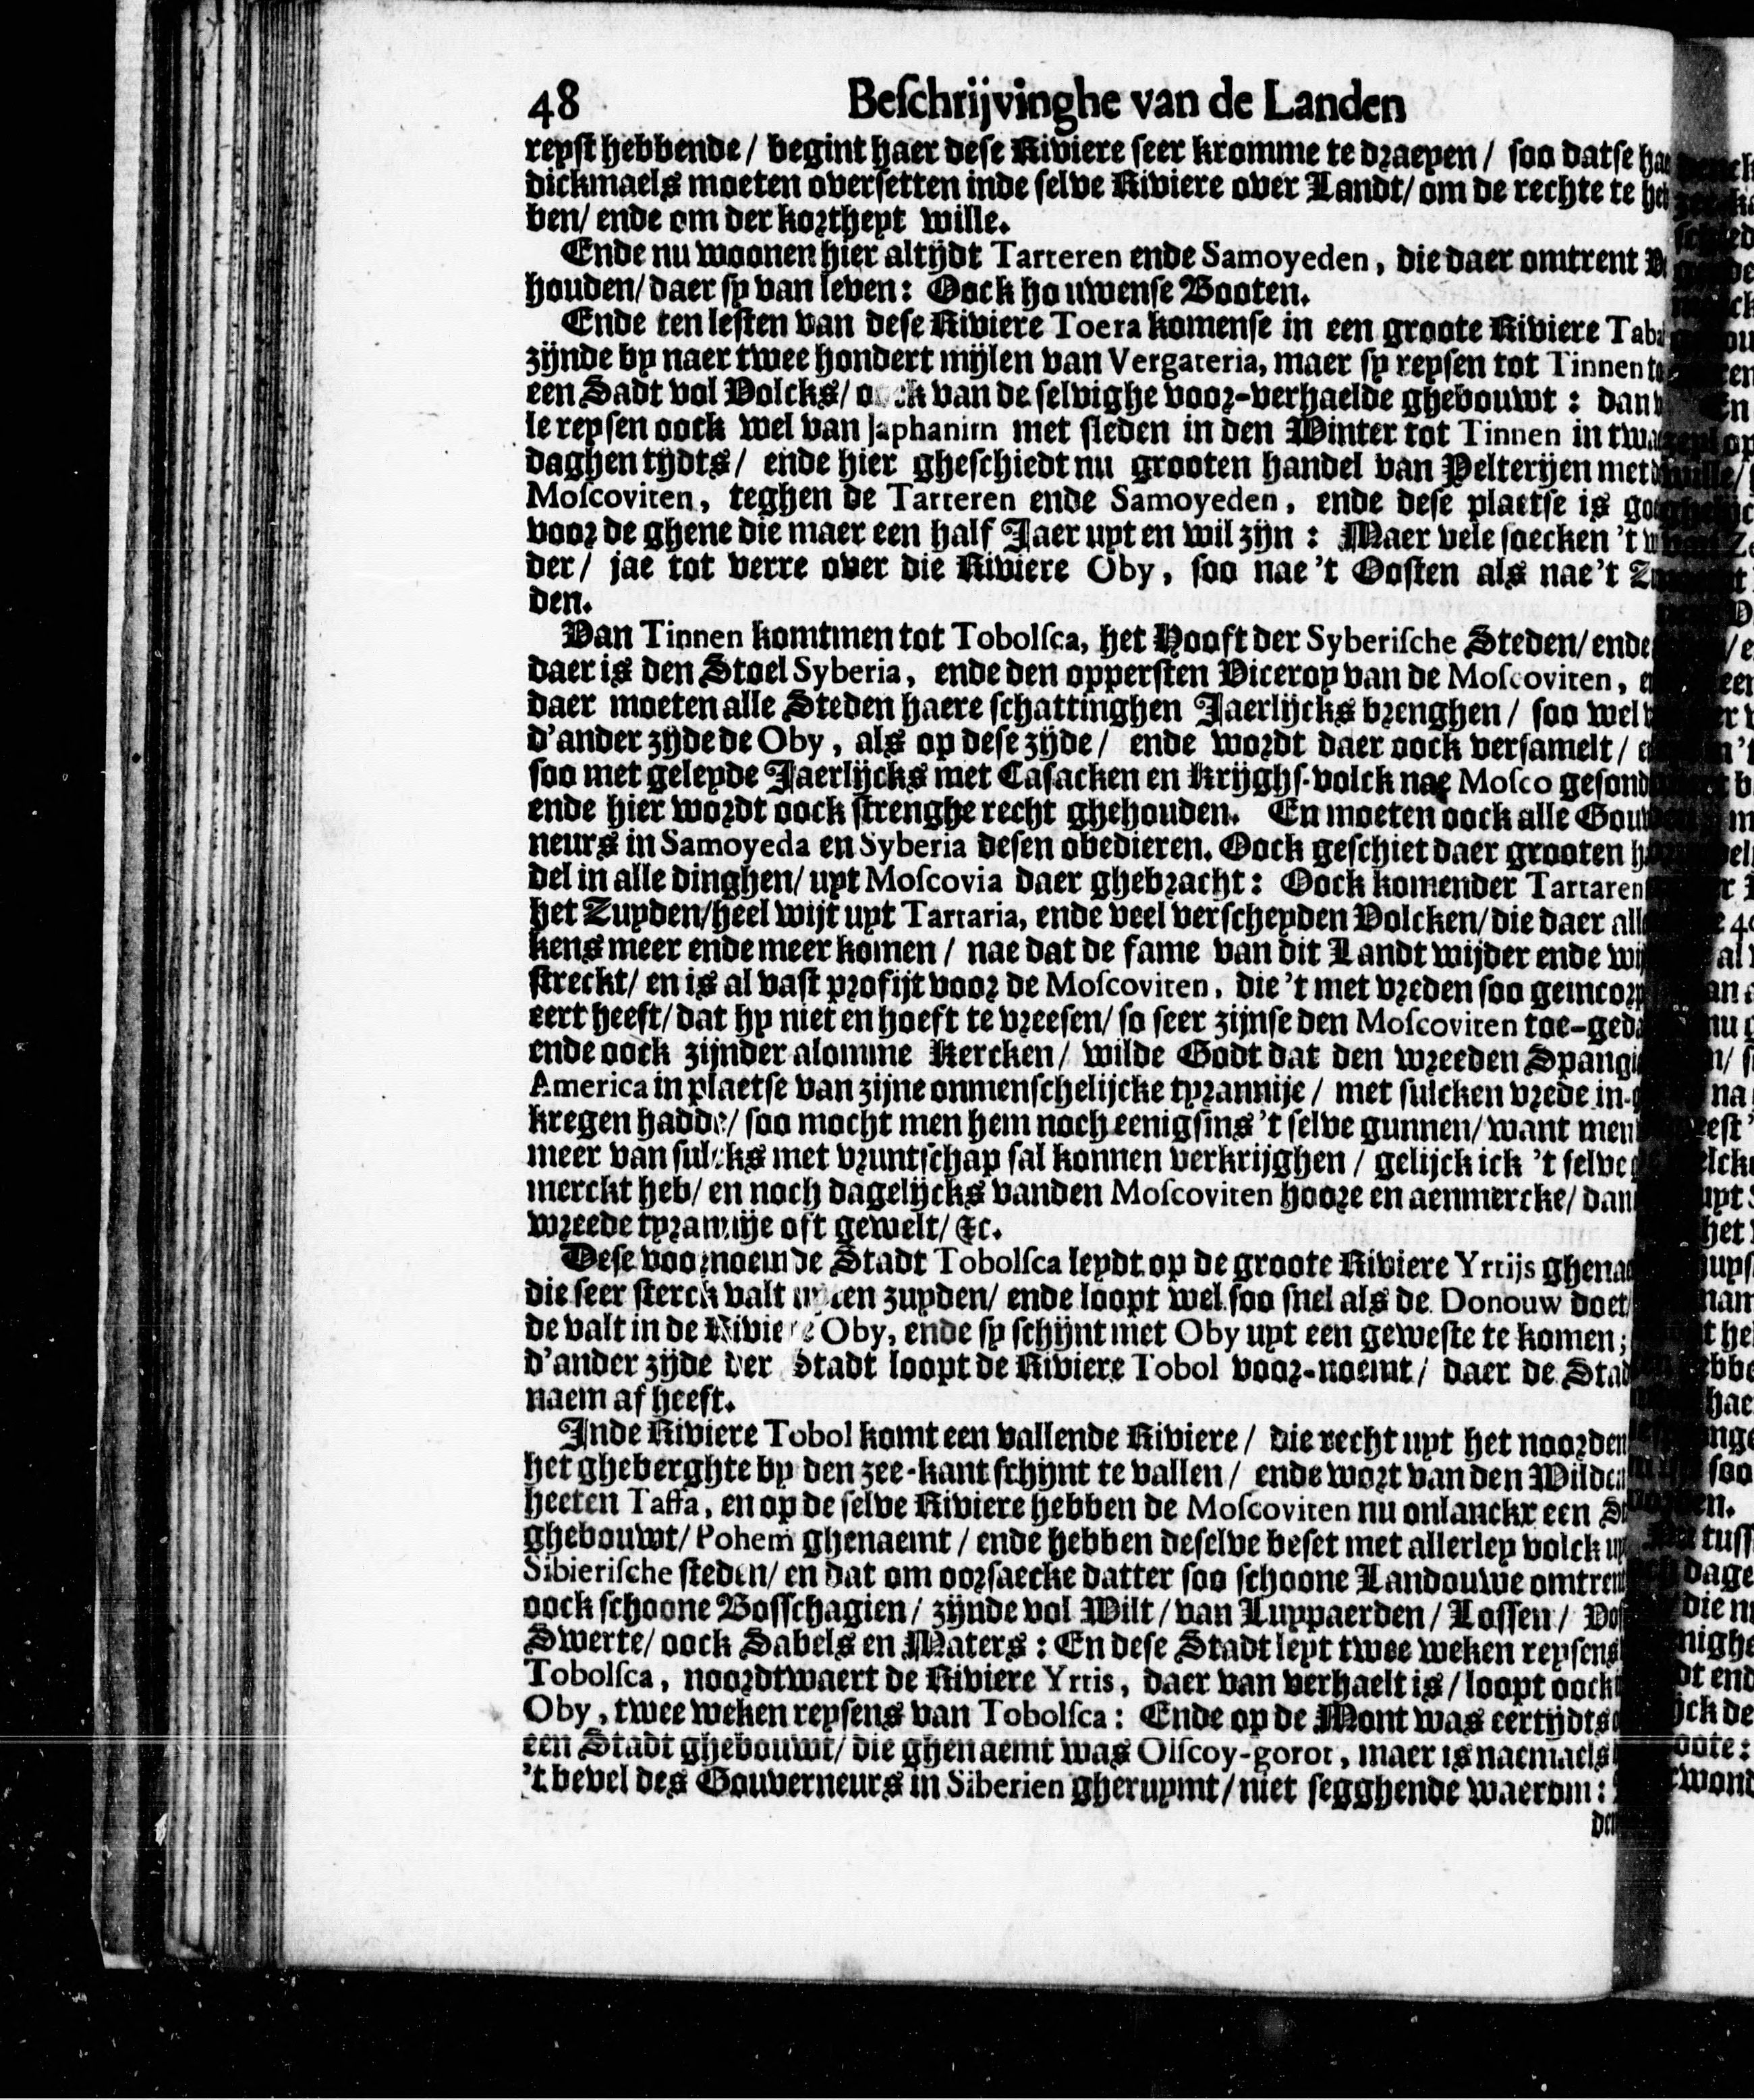 48 Beſchrijvinghe van de Landen
reyſt hebbende / begint haer deſe Riviere ſeer kromme te draeyen / ſoo datſe
dickmaels moeten overſetten inde ſelve Riviere over Landt / om de rechte te
ben / ende om der kortheyt wille.
Ende nu woonen hier altijdt Tarteren ende Samoyeden, die daer omtrent
houden / daer ſy van leven: Oock houwenſe Booten.
Ende ten leſten van deſe Riviere Toera komenſe in een groote Riviere
zijnde by naer twee hondert mijlen van Vergateria, maer ſy reyſen tot Tinnen
een Sadt vol Volcks / oock van de ſelvighe voor-verhaelde ghebouwt:
le reyſen oock wel van Japhanim met ſleden in den Winter tot Tinnen in
daghen tijdts / ende hier gheſchiedt nu grooten handel van Pelterijen met
Moſcoviten, teghen de Tarteren ende Samoyeden, ende deſe plaetſe is
voor de ghene die maer een half Jaer uyt en wil zijn: Maer vele ſoecken 't
der / jae tot verre over die Riviere Oby, ſoo nae 't Ooſten als nae 't
den.
Van Tinnen komtmen tot Tobolſca, het Hooft der Syberiſche Steden / ende
daer is den Stoel Syberia, ende den opperſten Viceroy van de Moſcoviten,
daer moeten alle Steden haere ſchattinghen Jaerlijcks brenghen / ſoo wel
d'ander zijde de Oby, als op deſe zijde / ende wordt daer oock verſamelt /
ſoo met geleyde Jaerlijcks met Caſacken en Krijghſ-volck nae Moſco
ende hier wordt oock ſtrenghe recht ghehouden. En moeten oock alle
neurs in Samoyeda en Syberia deſen obedieren. Oock geſchiet daer grooten
del in alle dinghen / uyt Moſcovia daer ghebracht: Oock komender Tartaren
het Zuyden / heel wijt uyt Tartaria, ende veel verſcheyden Volcken / die daer
kens meer ende meer komen / nae dat de fame van dit Landt wijder ende
ſtreckt / en is al vaſt profijt voor de Moſcoviten, die 't met vreden ſoo
eert heeft / dat hy niet en hoeft te vreeſen / ſo ſeer zijnſe den Moſcoviten
ende oock zijnder alomme Kercken / wilde Godt dat den wreeden
America in plaetſe van zijne onmenſchelijcke tyrannije / met ſulcken vrede
kregen hadde / ſoo mocht men hem noch eenigſins 't ſelve gunnen / want men
meer van ſulcks met vruntſchap ſal konnen verkrijghen / gelijck ick 't ſelve
merckt heb / en noch dagelijcks vanden Moſcoviten hoore en aenmercke / dan
wreede tyrannije oft gewelt / &c.
Deſe voornoemde Stadt Tobolſca leydt op de groote Riviere Yrtijs
die ſeer ſterck valt uyten zuyden / ende loopt wel ſoo ſnel als de Donouw doet
de valt in de Riviere Oby, ende ſy ſchijnt met Oby uyt een geweſte te komen;
d'ander zijde der Stadt loopt de Riviere Tobol voor-noemt / daer de
naem af heeft.
Inde Riviere Tobol komt een vallende Riviere / die recht uyt het noorden
het gheberghte by den zee-kant ſchijnt te vallen / ende wort van den
heeten Taffa, en op de ſelve Riviere hebben de Moſcoviten nu onlanckx een
ghebouwt / Pohem ghenaemt / ende hebben deſelve beſet met allerley volck
Sibieriſche ſteden / en dat om oorſaecke datter ſoo ſchoone Landouwe
oock ſchoone Boſſchagien / zijnde vol Wilt / van Luypaerden / Loſſen /
Swerte / oock Sabels en Maters: En deſe Stadt leyt twee weken reyſens
Tobolſca, noordtwaert de Riviere Yrtis, daer van verhaelt is / loopt oock
Oby, twee weken reyſens van Tobolſca: Ende op de Mont was eertijdts
een Stadt ghebouwt / die ghenaemt was Olſcoy-gorot, maer is naemaels
't bevel des Gouverneurs in Siberien gheruymt / niet ſegghende waerom: